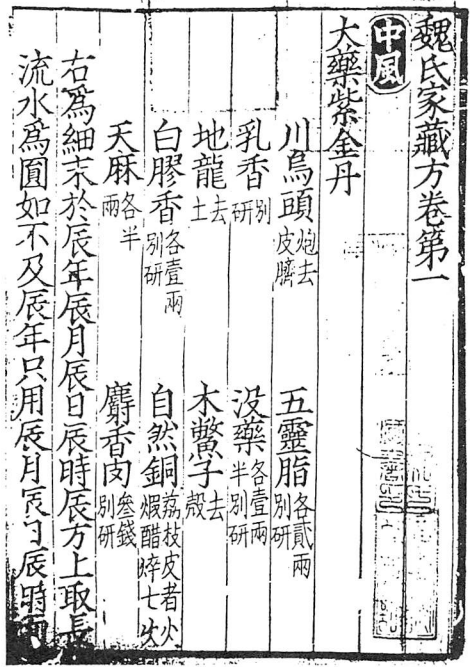 魏氏家藏方卷第一
中風
大藥紫金丹
川烏頭炮去皮臍 五靈脂各貳兩別研
乳香別研 没藥各壹兩半別研
地龍去土 木鱉子去殼
白膠香各壹兩別研 自然銅荔枝皮者火煆醋焠七次
天麻各半兩 麝香肉叁錢別研
右爲細末於辰年辰月辰日辰時辰方上取長
流水爲圓如不及辰年只用辰月辰日辰時